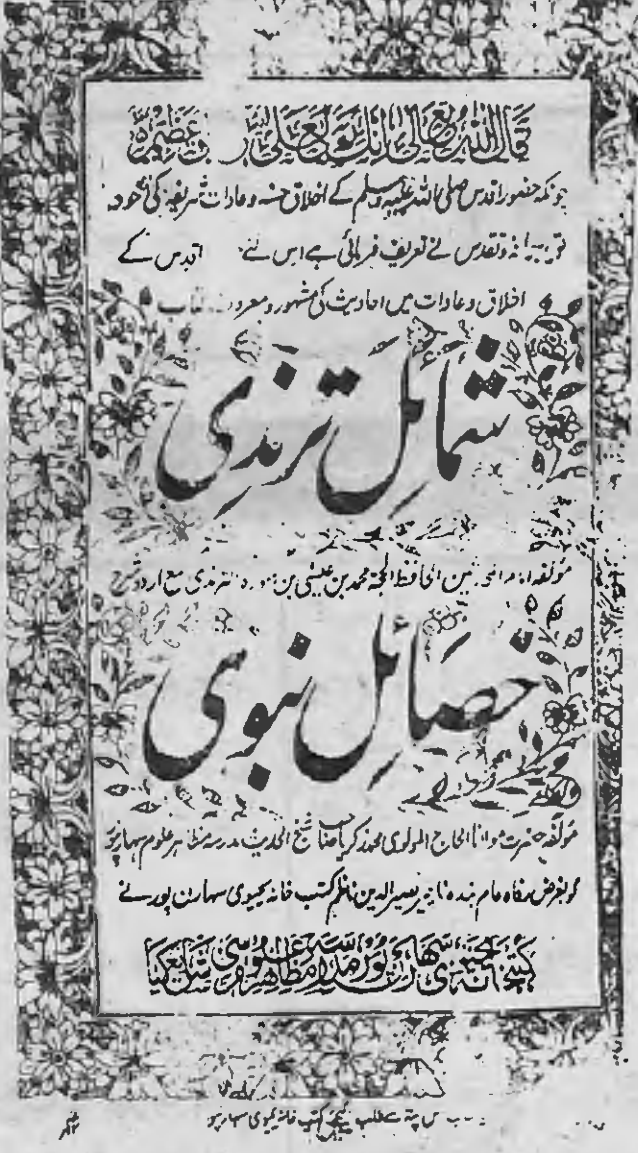 قال اللہ تعالیٰ انک لعلیٰ
چونکہ حضور اقدس صلی اللہ علیہ وسلم کے اخلاق حسنہ وعادات شریفہ کی خود
وتقدس نے تعریف فرمائی ہے اس لئے اقدس کے
اخلاق وعادات میں احادیث کی مشہور ومعروف کتاب
شمائل ترمذی
مؤلفہ الحافظ الحجۃ محمد بن عیسیٰ بن الترمذی مع اردو شرح
خصائل نبوی
مؤلفہ حضرت مولانا الحاج المولوی محمد زکریا صاحب شیخ الحدیث مدرسہ مظاہر علوم سہارنپور
کو بغرض رفاہ عام بندہ ناچیز نصیر الدین ناظم کتب خانہ یحیوی سہارن پور نے
کتب خانہ یحیوی سہارنپور مدرسہ مظاہر سے شایع کیا
اس پتہ سے طلب کیجئے کتب خانہ یحیوی سہارنپور